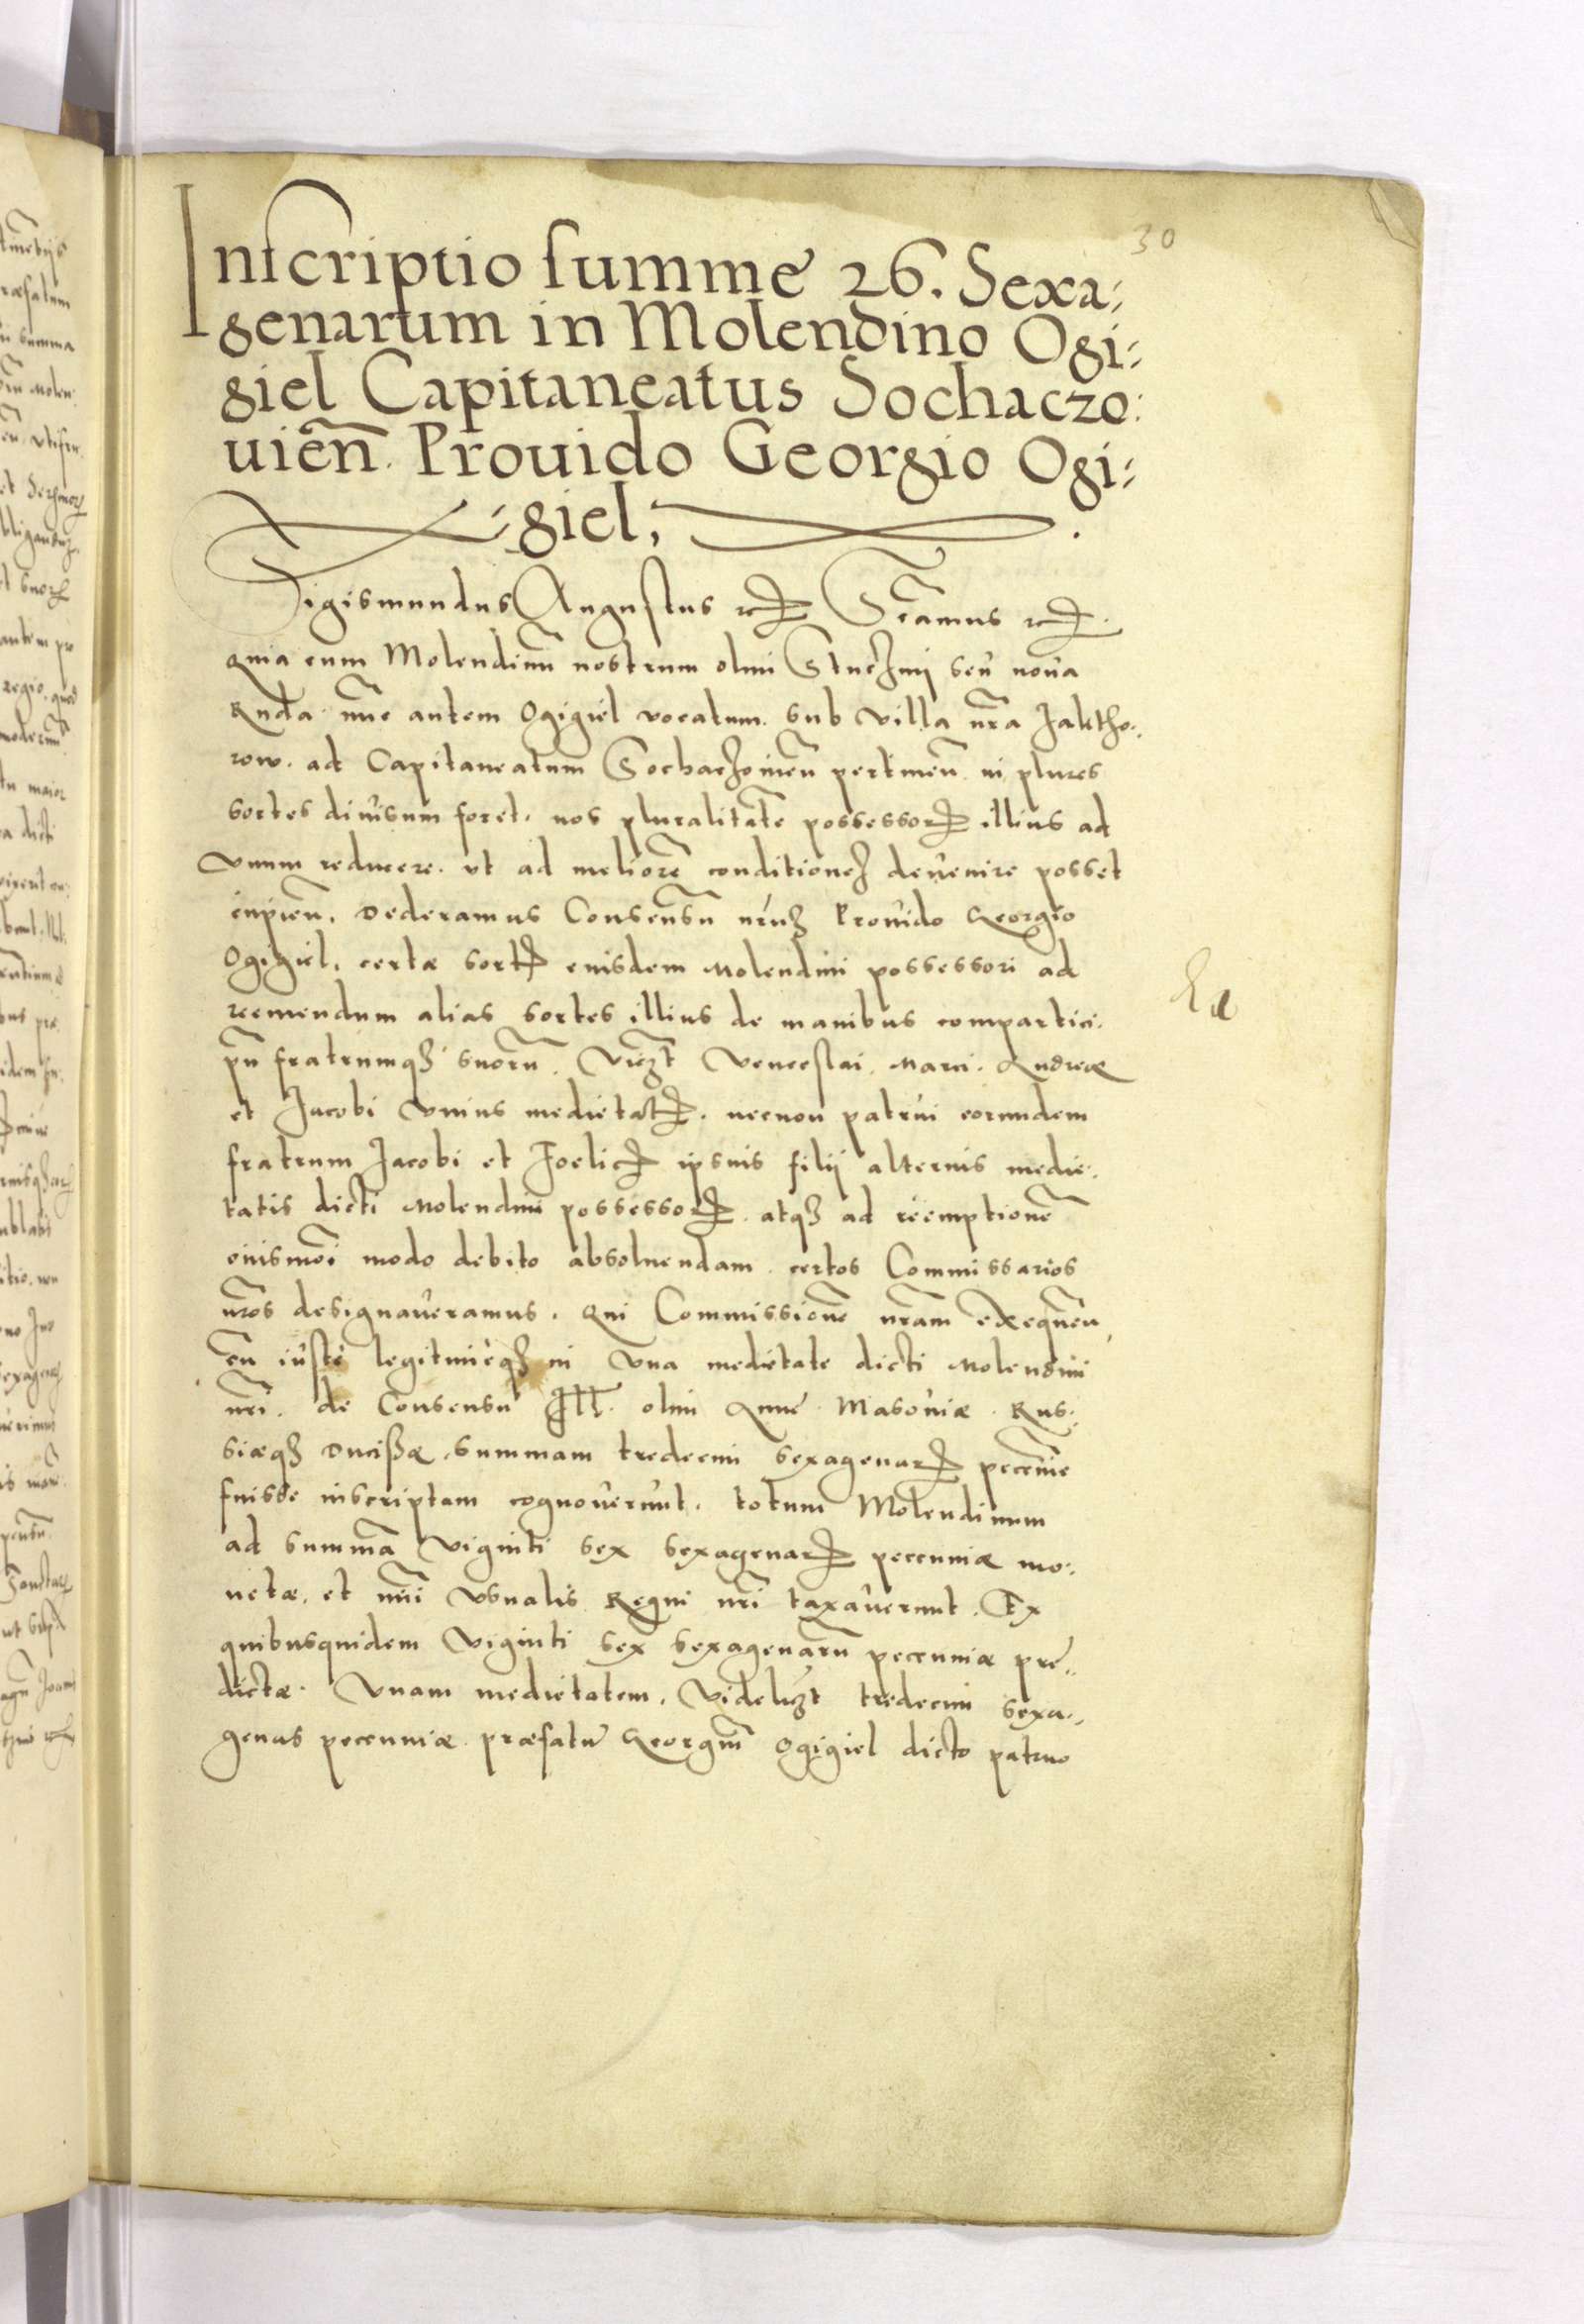 30
Inscriptio summe 26. Sexa-
genarum in Molendino Ogi-
giel Capitaneatus Sochaczo-
uień. Prouido Georgio Ogi-
giel,
Sigismundus Augustus etc. Sčamus etc.
Quia cum Molendinū nostrum olim seu noua
Ruda nūc autem Ogigiel vocatum. sub villa nŕa Jaktho-
row. ad Capitaneatum Sochaczouień pertineñ in plures
sortes diuisum foret. nos pluralitatē possessorꝝ illius ad
vnum reducere. vt ad meliorē conditionē deuenire posset
cupień. Dederamus Consensū nrūz Prouido Georgio
Ogigiel, certæ sortis eiusdem Molendini possessori ad
reemendum alias sortes illius de manibus compartici-
pū fratrumqꝫ suorū. Viczt Venceslai. Marci. Andreæ
et Jacobi vnius medietatis. necnon patrui eorundem
fratrum Jacobi et Foelicis ipsius filij alterius medie-
tatis dicti Molendini possessorꝝ. atqꝫ ad reemptionē
eiusmōi modo debito absoluendam. certos Commissarios
nr̄os designaueramus. Qui Commissionē nr̄am exequeñ
cū iuste legitimeqꝫ in vna medietate dicti Molendini
nr̄i. de Consensu Ill. olim Anne Masouiæ Rus-
siæqꝫ Ducissæ summam tredecim sexagenarꝝ pecūnie
fuisse inscriptam cognouerunt. totum Molendinum
ad summā viginti sex sexagenarꝝ pecuniæ mo-
netæ. et nūi vsualis Regni nr̄i taxauerunt. Ex
quibusquidem viginti sex sexagenarū pecuniæ præ-
dictæ. vnam medietatem. videliczt tredecim sexa-
genas pecuniæ præfatū Georgiū Ogigiel dicto patruo